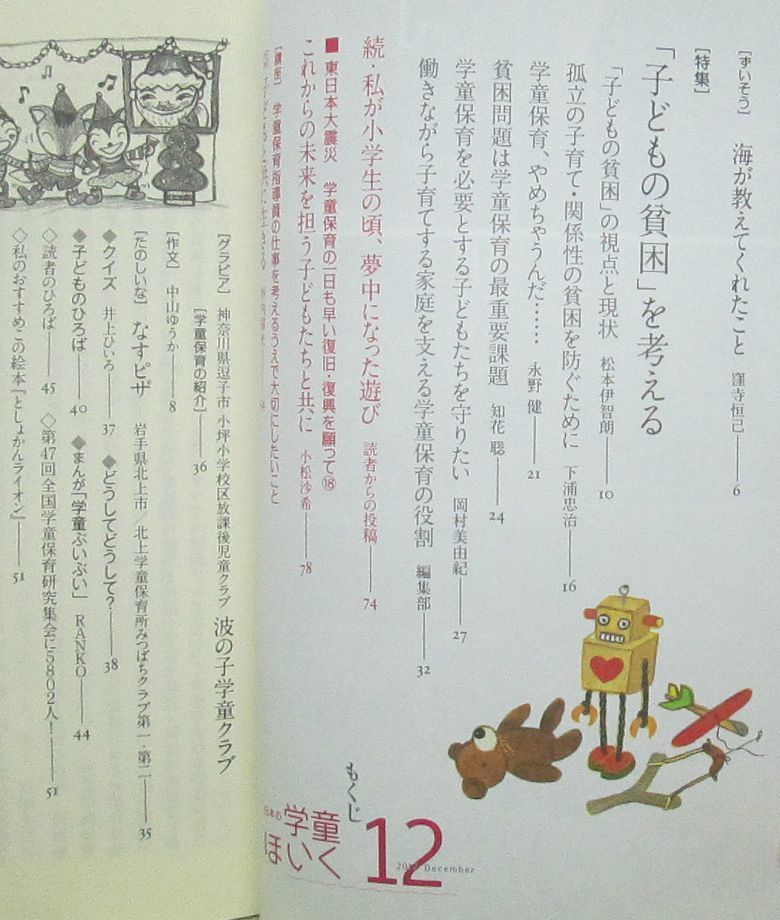 [ずいそう] 海が教えてくれたこと 窪寺恒己 6
[特集]
「子どもの貧困」を考える
「子どもの貧困」の視点と現状 松本伊智朗 10
孤立の子育て・関係性の貧困を防ぐために 下浦忠治 16
学童保育、やめちゃうんだ…… 永野 健 21
貧困問題は学童保育の最重要課題 知花 聡 24
学童保育を必要とする子どもたちを守りたい 岡村美由紀 27
働きながら子育てする家庭を支える学童保育の役割 編集部 32
続・私が小学生の頃、夢中になった遊び 読者からの投稿 74
■東日本大震災 学童保育の一日も早い復旧・復興を願って⑱
これからの未来を担う子どもたちと共に 小松沙希 78
[講座] 学童保育指導員の仕事を考えるうえで大切にしたいこと
もくじ
日本の学童
ほいく
12
December
[グラビア] 神奈川県逗子市 小坪小学校区放課後児童クラブ 波の子学童クラブ
[学童保育の紹介] 36
[作文] 中山ゆうか 8
[たのしいな] なすピザ 岩手県北上市／北上学童保育所みつばちクラブ第一・第二 35
◆クイズ 井上ひいろ 37 ◆どうしてどうして？ 38
◆子どものひろば 40 ◆まんが「学童ぶいぶい」 RANKO 44
◇読者のひろば 45 ◇第47回全国学童保育研究集会に5802人！ 51
◇私のおすすめこの絵本『としょかんライオン』 51